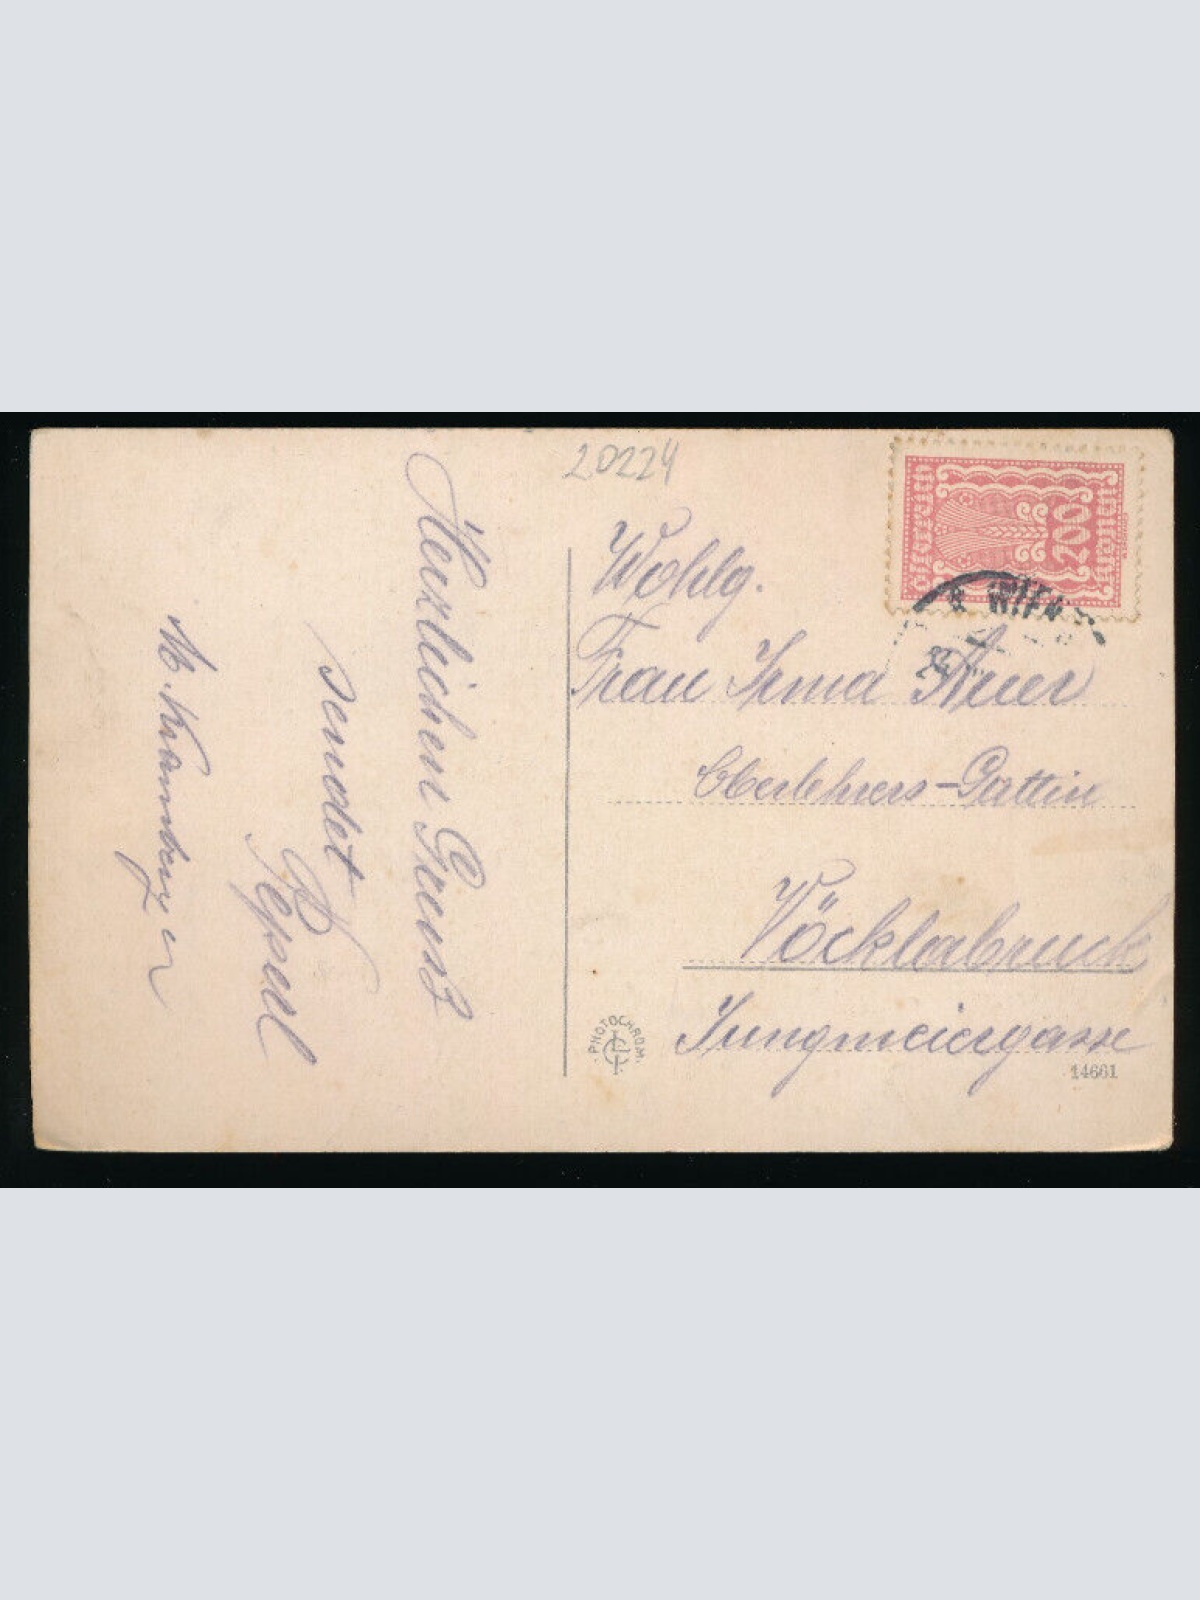 20224
Herzlichen Gruß
sendet
Pepserl
Wohlg.
Frau Irma Auer
Oberlehrers-Gattin
Vöcklabruck
Jungmeiergasse
200
WIEN
PHOTOCHROM.
14661